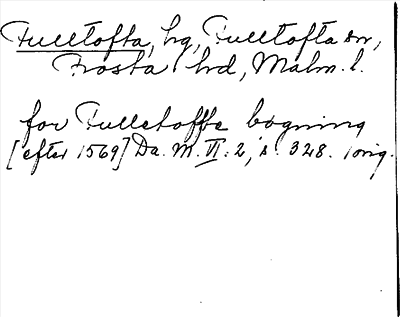 Fulltofta, hg, Fulltofta sn,
Frosta hd, Malm. l.
for Fulletoffte bogning
[efter 1569] Da. M. VI: 2, s. 328. orig.